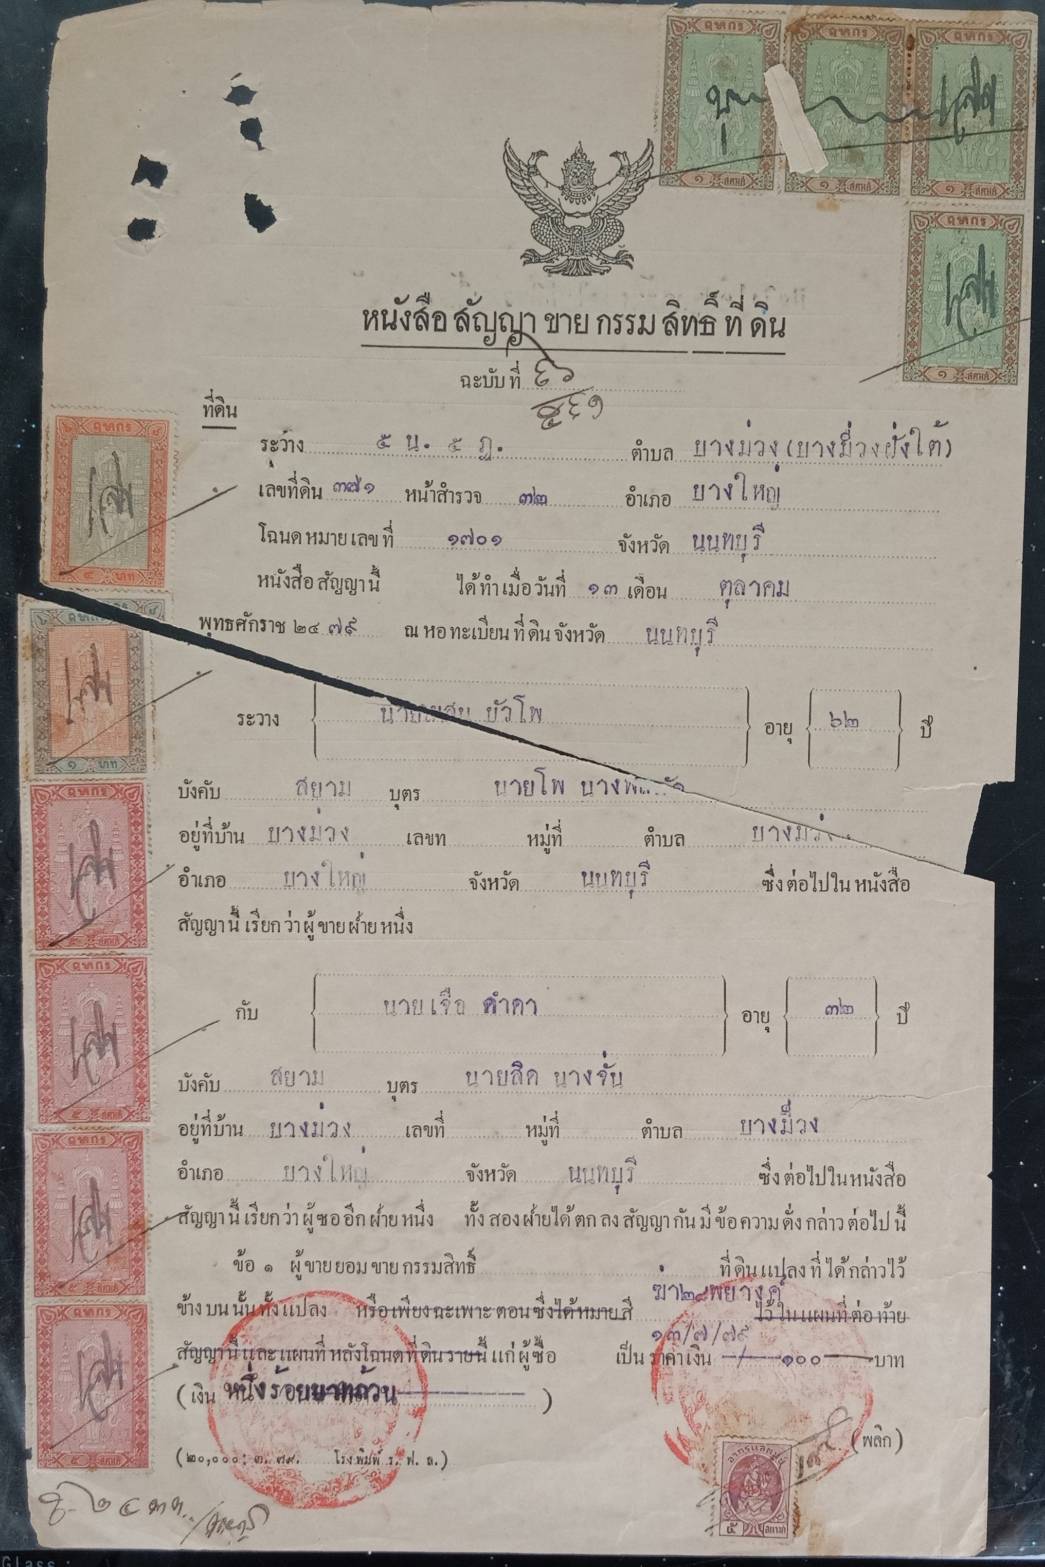 อากร อากร อากร
๑ สตางค์ ๑ สตางค์ ๑ สตางค์
อากร
๑ สตางค์
หนังสือ สัญญา ขาย กรรม สิทธิ์ ที่ ดิน
ฉะบับ ที่ ๕๖
๕๔๑
ที่ดิน
ระวาง ๕ น. ๕ ฎ. ตำบล บางม่วง (บางม่วงฝั่งใต้)
เลขที่ดิน ๓๗๑ หน้าสำรวจ ๓๒ อำเภอ บางใหญ่
โฉนด หมายเลข ที่ ๑๗๐๑ จังหวัด นนทบุรี
หนังสือ สัญญา นี้ ได้ ทำ เมื่อ วันที่ ๑๓ เดือน ตุลาคม
พุทธศักราช ๒๔ ๗๙ ณ หอ ทะเบียน ที่ ดิน จังหวัด นนทบุรี
ระวาง บัวโพ อายุ ๖๒ ปี
บังคับ สยาม บุตร นายโพ
อยู่ที่บ้าน บางม่วง เลขที่ หมู่ที่ ตำบล บางม่วง
อำเภอ บางใหญ่ จังหวัด นนทบุรี ซึ่ง ต่อ ไป ใน หนังสือ
สัญญา นี้ เรียก ว่า ผู้ ขาย ฝ่าย หนึ่ง
กับ นาย เจือ คำดา อายุ ๓๒ ปี
บังคับ สยาม บุตร นายสิด นางจั่น
อยู่ที่บ้าน บางม่วง เลขที่ หมู่ที่ ตำบล บางม่วง
อำเภอ บางใหญ่ จังหวัด นนทบุรี ซึ่ง ต่อ ไป ใน หนังสือ
สัญญา นี้ เรียก ว่า ผู้ ซื้อ อีก ฝ่าย หนึ่ง ทั้ง สอง ฝ่าย ได้ ตก ลง สัญญา กัน มี ข้อ ความ ดั่ง กล่าว ต่อ ไป นี้
ข้อ ๑ ผู้ ขาย ยอม ขาย กรรมสิทธิ์ ที่ ดิน แปลง ที่ ได้ กล่าว ไว้
ฆ่า๒๘พยางค์
ข้าง บน นั้น ทั้ง แปลง หรือ เพียง ฉะเพาะ ตอน ซึ่ง ได้ หมาย สี ไว้ ใน แผน ที่ ต่อ ท้าย
๑๓/๗/๗๙
สัญญา นี้ และ แผน ที่ หลัง โฉนด ที่ ดิน ราย นี้ แก่ ผู้ ซื้อ เป็น ราคา เงิน ๑๐๐ บาท
( เงิน หนึ่งร้อยบาทถ้วน )
(พลิก)
(๒๐,๐๐๐ : ๓. ๗๙. โรงพิมพ์ ร. ฟ. ล.)
อากร
๔ บาท
อากร
๑ บาท
อากร
๕ สตางค์
อากร
๕ สตางค์
อากร
๕ สตางค์
อากร
๕ สตางค์
๕ สตางค์